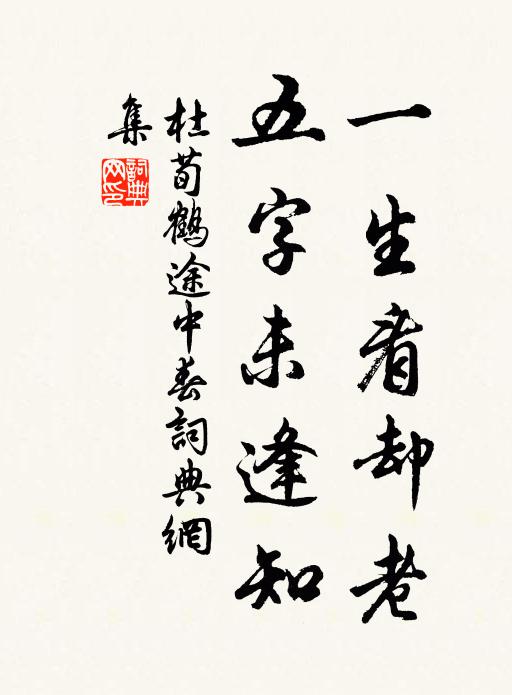 一生看却老
五字未逢知
杜荀鶴途中春詞典網
集
詞典网印